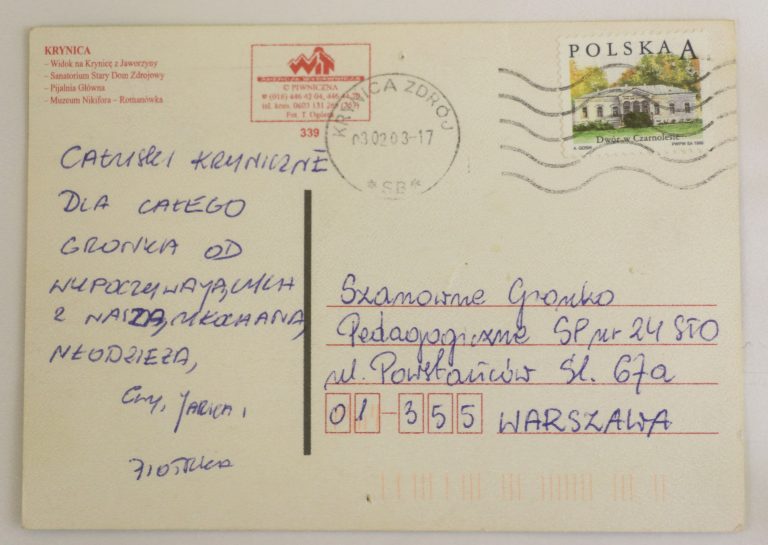 KRYNICA
– Widok na Krynicę z Jaworzyny
– Sanatorium Stary Dom Zdrojowy
– Pijalnia Główna
– Muzeum Nikifora – Romanówka
AGENCJA WYDAWNICZA
© PIWNICZNA
Fot. T. Ogórek
339
KRYNICA ZDRÓJ
030203-17
*SB*
POLSKA A
Dwór w Czarnolesie
PWPW SA 1999
CAŁUSKI KRYNICZNE
DLA CAŁEGO
GRONKA OD
WYPOCZYWAJĄCYCH
Z NASZĄ UKOCHANĄ
MŁODZIEŻĄ,
JARKA,
PIOTRKA
Szanowne Gronko
Pedagogiczne SP nr 24 STO
ul. Powstańców Śl. 67a
01-355 WARSZAWA